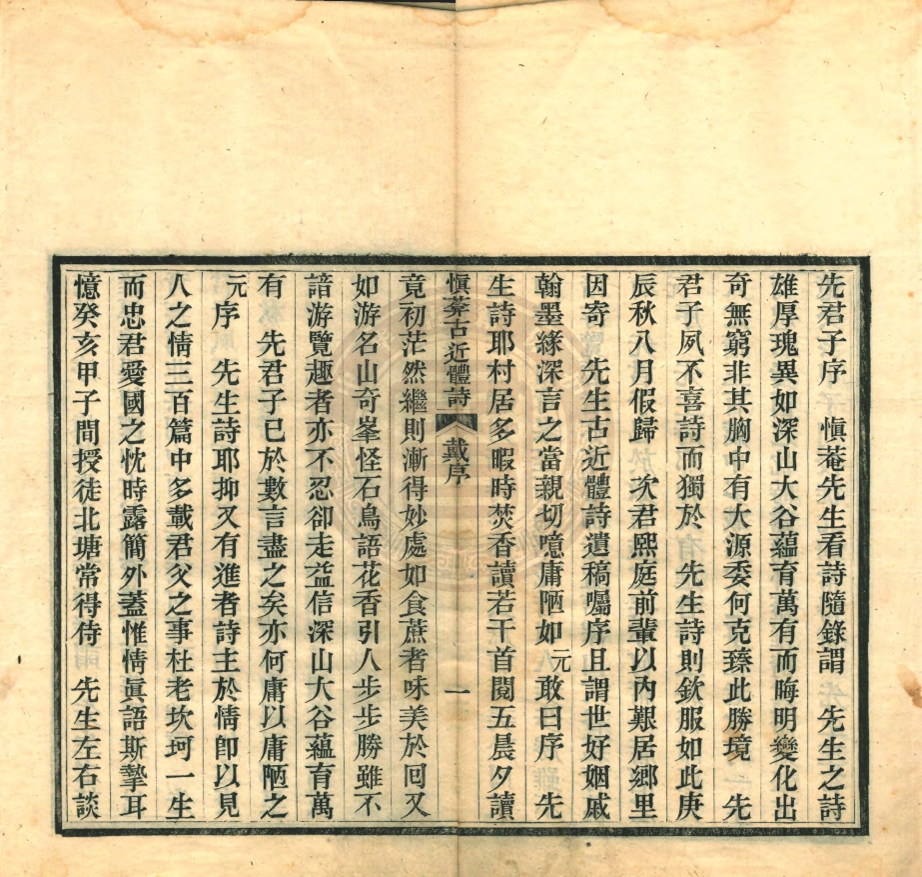 先君子序　愼菴先生看詩隨錄謂　先生之詩
雄厚瑰異如深山大谷蘊育萬有而晦明變化出
奇無窮非其胸中有大源委何克臻此勝境　先
君子夙不喜詩而獨於　先生詩則欽服如此庚
辰秋八月假歸　次君熙庭前輩以內艱居鄉里
因寄　先生古近體詩遺稿囑序且謂世好姻戚
翰墨緣深言之當親切噫庸陋如元敢曰序　先
生詩耶村居多暇時焚香讀若干首閱五晨夕讀
愼菴古近體詩　戴序　一
竟初茫然繼則漸得妙處如食蔗者味美於回又
如游名山奇峯怪石鳥語花香引人步步勝雖不
諳游覽趣者亦不忍卻走益信深山大谷蘊育萬
有　先君子已於數言盡之矣亦何庸以庸陋之
元序　先生詩耶抑又有進者詩主於情卽以見
人之情三百篇中多載君父之事杜老坎坷一生
而忠君愛國之忱時露簡外蓋惟情眞語斯摯耳
憶癸亥甲子間授徒北塘常得侍　先生左右談